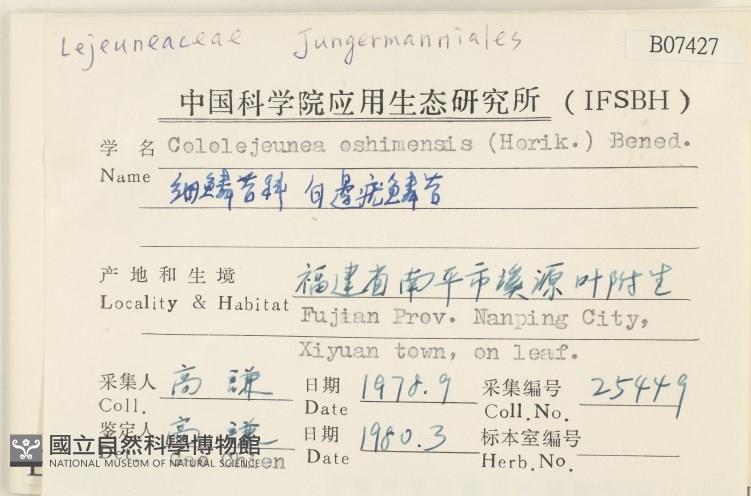 Lejeuneaceae Jungermanniales
B07427
中国科学院应用生态研究所 (IFSBH)
学 名 Cololejeunea oshimensis (Horik.) Bened.
Name 细鳞苔科 白边疣鳞苔
产地和生境 福建省南平市溪源 叶附生
Locality & Habitat Fujian Prov. Nanping City,
Xiyuan town, on leaf.
采集人 高 謙 日期 1978.9 采集编号 25449
Coll. Date Coll.No.
鉴定人 高 謙 日期 1980.3 标本室编号
Det. Gao Chien Date Herb.No.
國立自然科學博物館
NATIONAL MUSEUM OF NATURAL SCIENCE